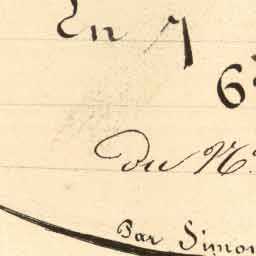 En 7
6
Du N.
Par Simon